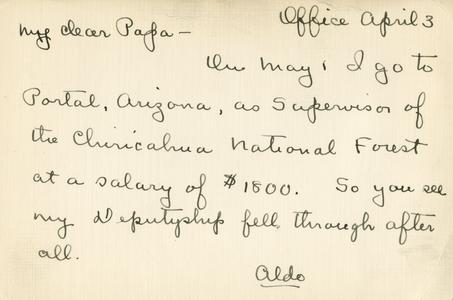 Office April 3
My dear Papa -
On May 1 I go to
Portal, Arizona, as Supervisor of
the Chiricahua National Forest
at a salary of $1800. So you see
my Deputyship fell through after
all.
Aldo